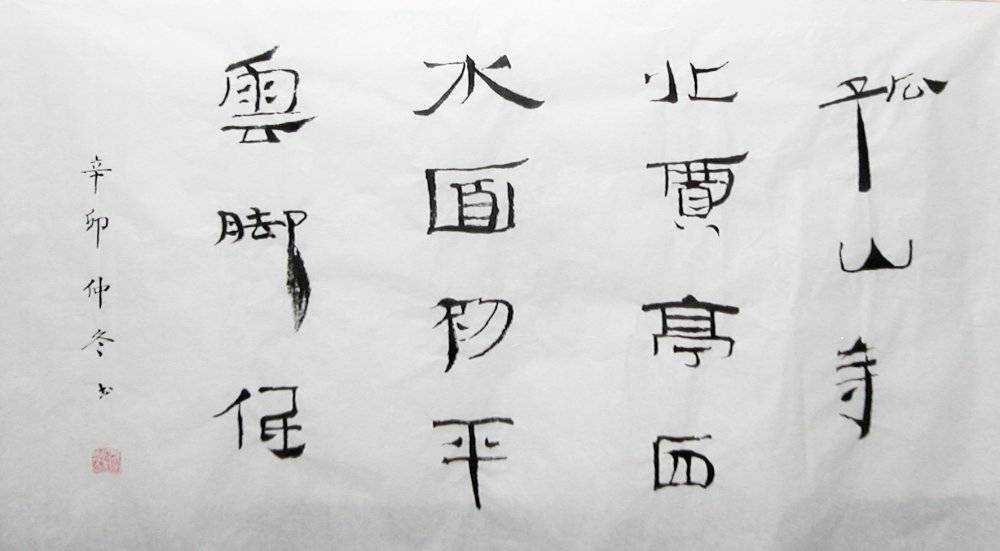 孤山寺
北賈亭西
水面初平
雲脚低
辛卯仲冬书